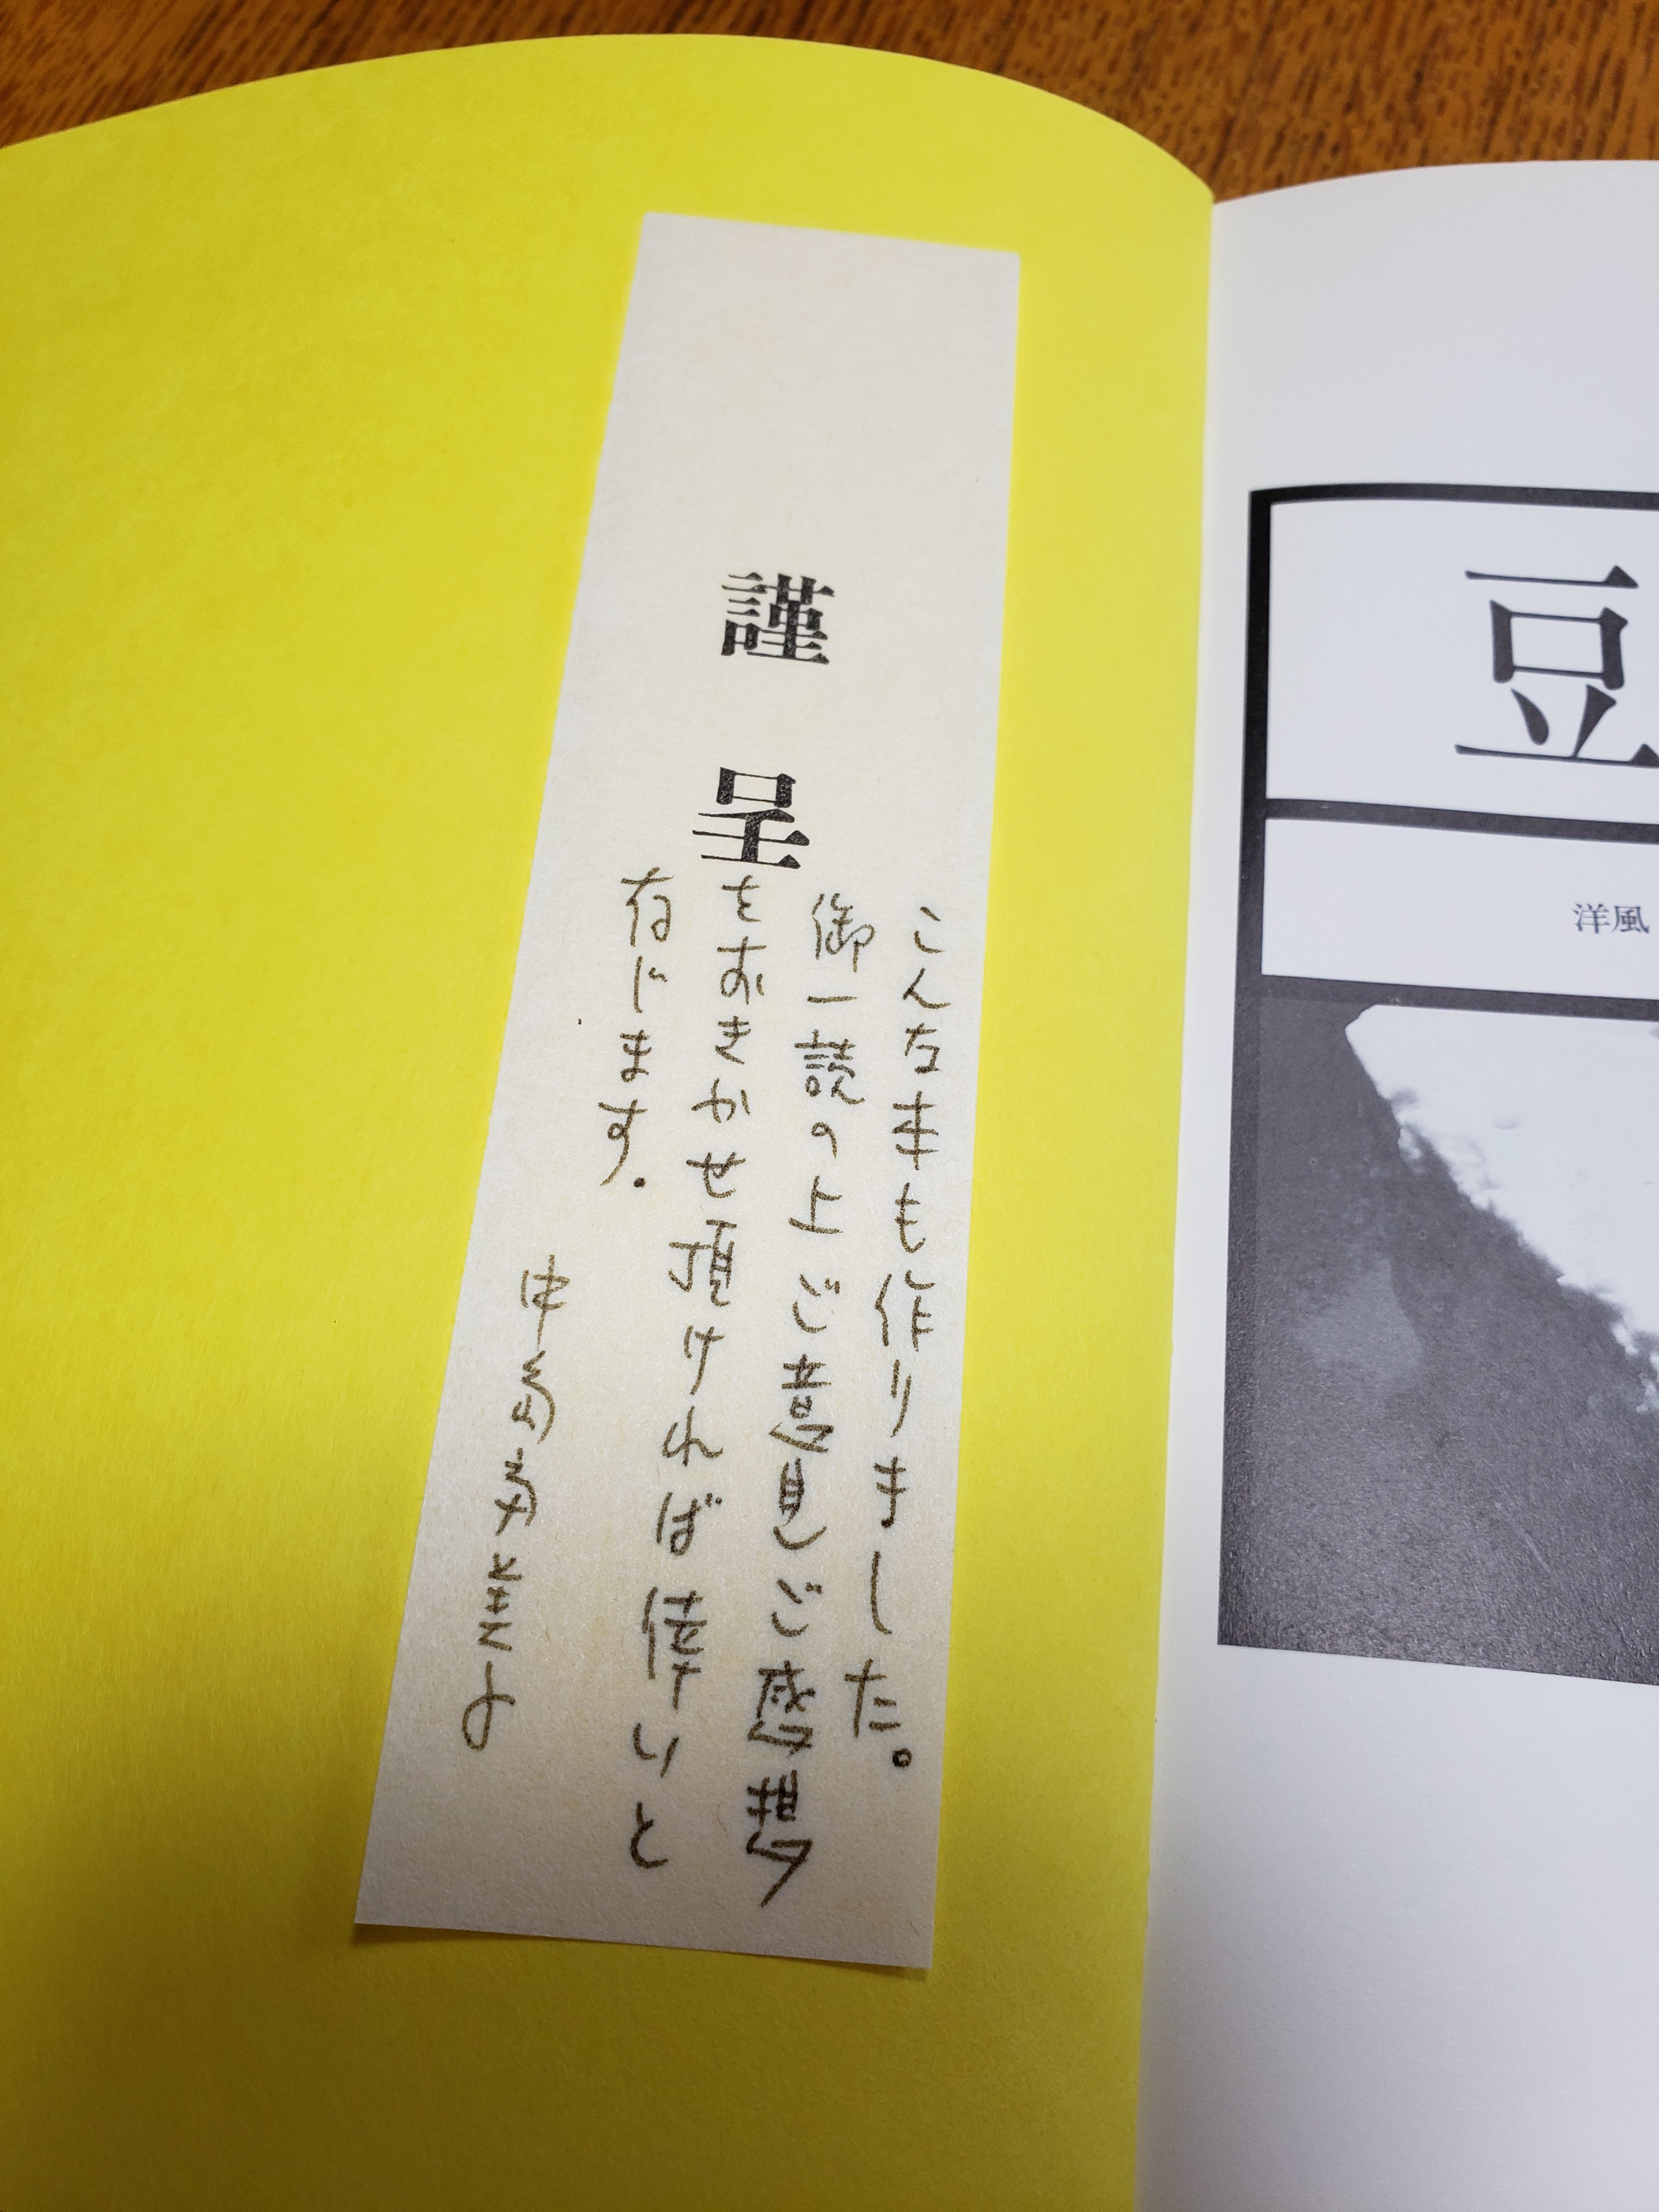 謹呈
こんな本も作りました。
御一読の上ご意見ご感想
をおきかせ頂ければ倖いと
存じます。
豆
洋風